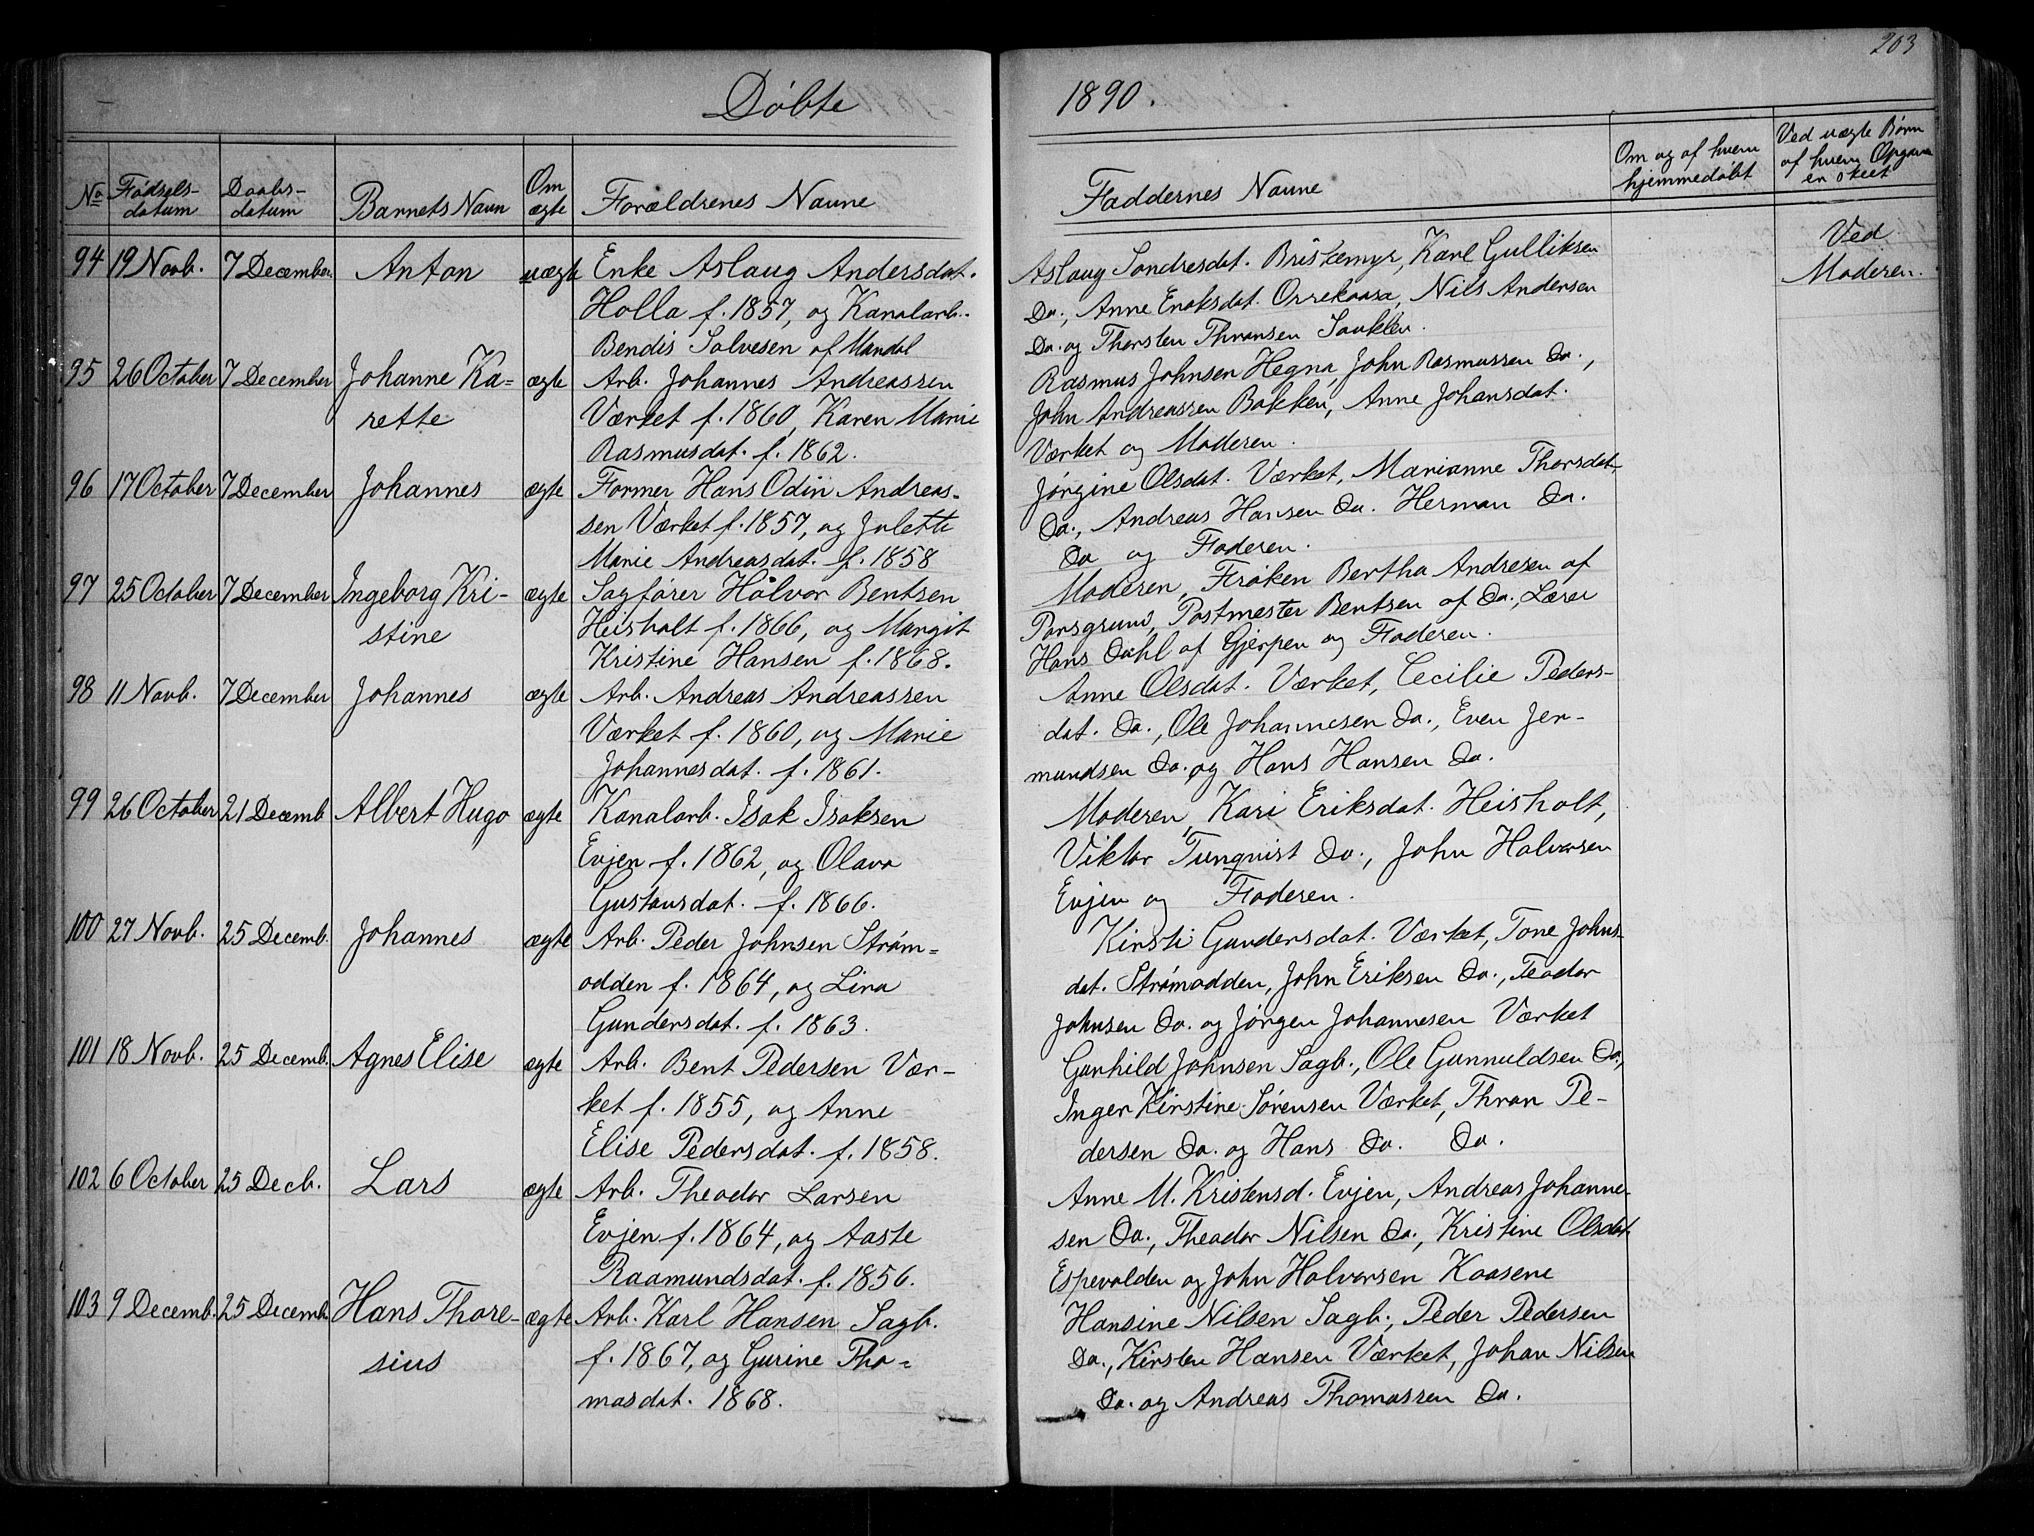 203
Døbte
1890.
No
Fødsels-
datum
Daabs-
datum
Barnets Navn
Om
ægte
Forældrenes Navne
Faddernes Navne
Om og af hvem
hjemmedøbt
Ved uægte Børn
af hvem Opgaven
en skeet
94 19 Novb. 7 December Anton uægte Enke Aslaug Andersdat.
Holla f. 1857, og Kanalarb.
Bendis Salvesen af Mandal
Aslaug Sondresdat. Briskemyr, Karl Gulliksen
Do., Anne Enoksdat. Orrekaasa, Nils Andersen
Do. og Thorsten Thronsen
Ved
Moderen.
95 26 October 7 December Johanne Ka=
rette
ægte Arb. Johannes Andreassen
Værket f. 1860, Karen Marie
Rasmusdat. f. 1862.
Rasmus Johnsen Hegna, John Rasmussen Do.,
John Andreassen Bakken, Anne Johansdat.
Værket og Moderen.
96 17 October 7 December Johannes ægte Former Hans Odin Andreas-
sen Værket f. 1857, og Julette
Marie Andreasdat. f. 1858
Jørgine Olsdat. Værket, Marianne Thorsdat.
Do., Andreas Hansen Do. Herman Do.
Do og Faderen.
97 25 October 7 December Ingeborg Kri-
stine
ægte Sagfører Halvor Bentsen
Heisholt f. 1866, og Margit
Kristine Hansen f. 1868.
Moderen, Frøken Bertha Andresen af
Porsgrund, Postmester Bentsen af Do., Lærer
Hans Dahl af Gjerpen og Faderen.
98 11 Novb. 7 December Johannes ægte Arb. Andreas Andreassen
Værket f. 1860, og Marie
Johannesdat. f. 1861.
Anne Olsdat. Værket, Cecilie Peders-
dat. Do., Ole Johannesen Do., Even Jer-
mundsen Do. og Hans Hansen Do.
99 26 October 21 Decemb. Albert Hugo ægte Kanalarb. Isak Isaksen
Evjen f. 1862, og Olava
Gustavsdat. f. 1866.
Moderen, Kari Eriksdat. Heisholt,
Viktor Tunqvist Do., John Halvorsen
Evjen og Faderen.
100 27 Novb. 25 Decemb. Johannes ægte Arb. Peder Johnsen Strøm=
odden f. 1864, og Lina
Gundersdat. f. 1863.
Kirsti Gundersdat. Værket, Tone Johns-
dat. Strømodden, John Eriksen Do., Teodor
Johnsen Do. og Jørgen Johannesen Værket
101 18 Novb. 25 Decemb. Agnes Elise ægte Arb. Bent Pedersen Vær-
ket f. 1855, og Anne
Elise Pedersdat. f. 1858.
Gunhild Johnsen Sagb., Ole Gunnuldsen Do.,
Inger Kirstine Sørensen Værket, Thron Pe-
dersen Do. og Hans Do. Do.
102 6 October 25 Decb. Lars ægte Arb. Theodor Larsen
Evjen f. 1864, og Aaste
Raamundsdat. f. 1856.
Anne M. Kristensd. Evjen, Andreas Johanne-
sen Do., Theodor Nilsen Do., Kristine Olsdat.
Espevolden og John Halvorsen Kaasene
103 9 Decemb. 25 Decemb. Hans Thore-
sius
ægte Arb. Karl Hansen Sagb.
f. 1867, og Gurine Tho=
masdat. 1868.
Hansine Nilsen Sagb., Peder Pedersen
Do., Kirsten Hansen Værket, Johan Nilsen
Do. og Andreas Thomassen Do.